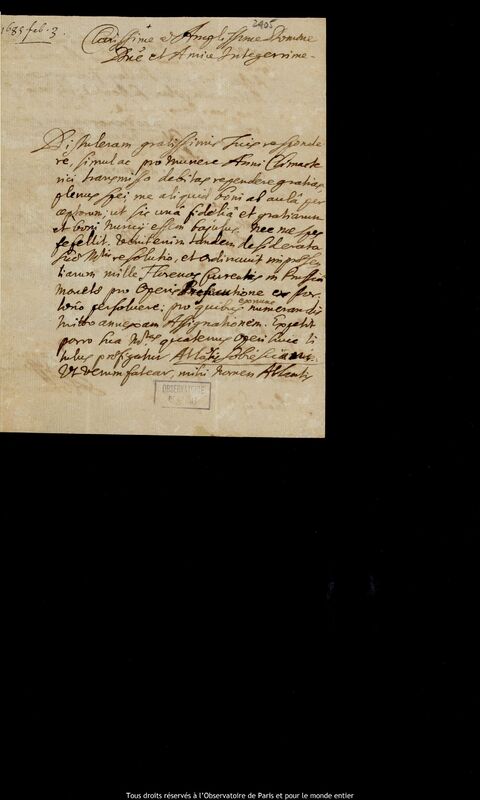 1685 feb. 3.
2405
Clarissime et Amplissime Domine
Dne et Amice Integerrime.
Distuleram gratissimis Tuis responde
re, simulac pro munere Anni Climacte
rici transmisso debitas rependere gratias
plenus spei me aliquid boni ab aulâ per
cepturum; ut sic unâ fideliâ et gratiarum
et boni nuncii essem bajulus, nec me spes
fefellit. Venit enim tandem desiderata
Mtis resolutio, et ordinavit
mille Florenos Currentis in Prussiâ
monetæ pro Operis
persolvere: pro quibus numerandis
mitto annexam Assignationem. Expetit
porro Sua Mtas quatenus operi huic ti
tulus præfigatur
Ut verum fatear, mihi nomen
OBSERVATOIRE
DE PARIS
Tous droits réservés à l'Observatoire de Paris et pour le monde entier